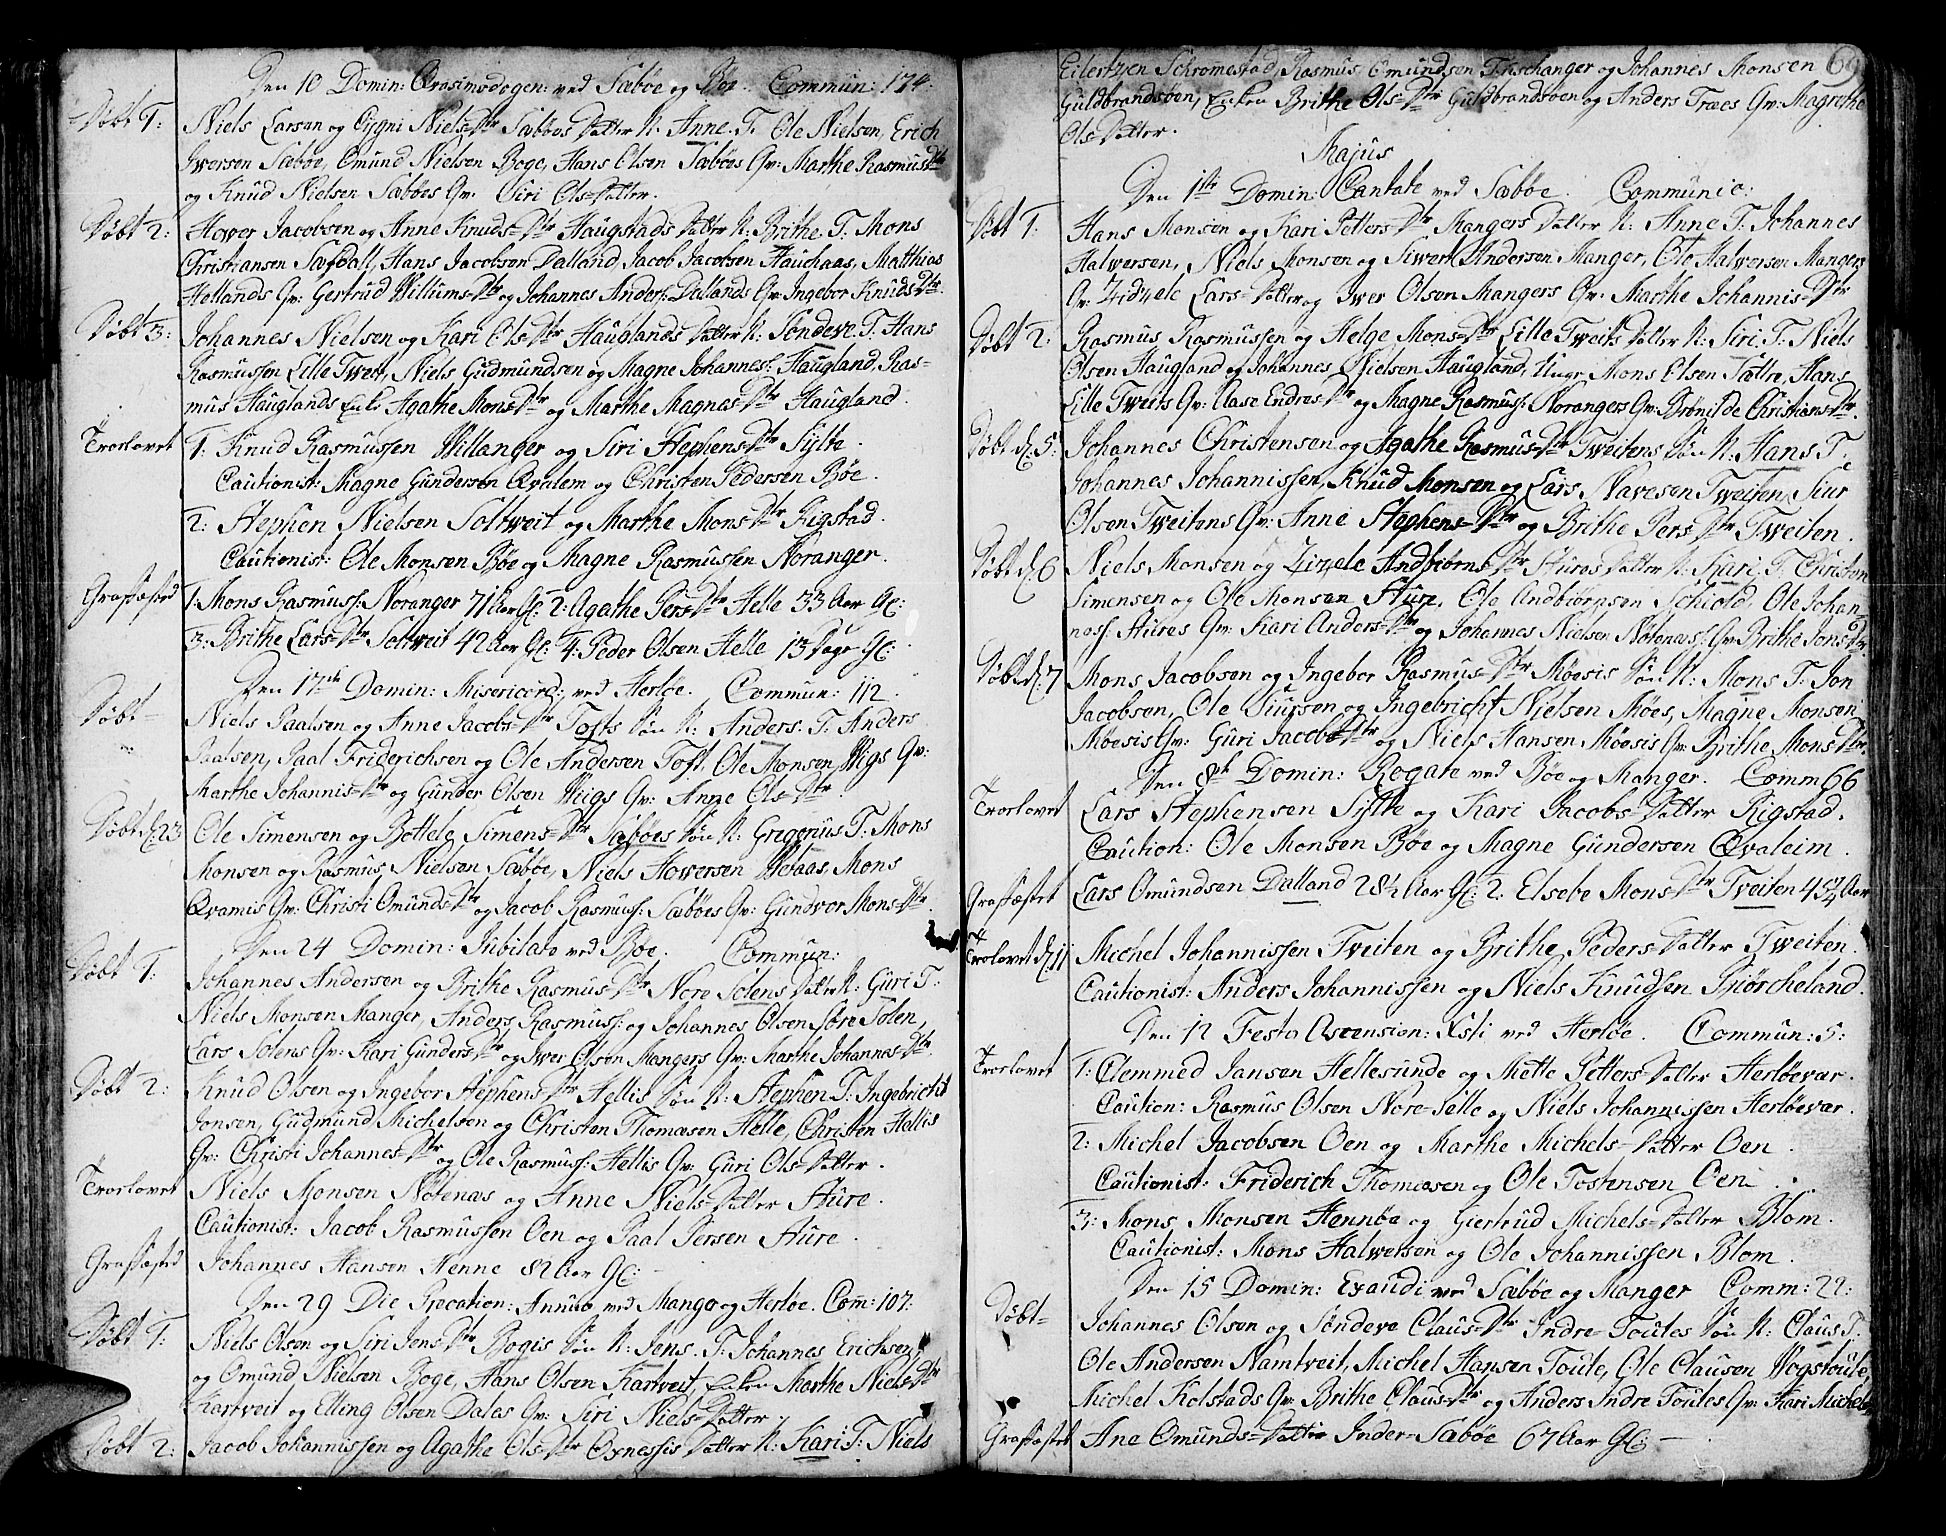 Den 10 Domin: Qvasimodogen: ved Sæbøe og Bøe. Commun: 174:
Døbt 1: Niels Larsen og Sygni Niels-Dtr Sæbøes Datter N: Anne. T. Ole Nielsen, Erich
Iwersen Sæbøe, Omund Nielsen Boge, Hans Olsen Sæbøes Qv: Marthe Rasmus-Dtr
og Knud Nielsen Sæbøes Qv: Siri Ols-Datter.
Døbt 2: Hower Jacobsen og Anne Knuds-Dtr Haugstads Datter N: Brithe T: Mons
Christiansen Sægdall, Hans Jacobsen Dalland, Jacob Jacobsen Hauchaas, Matthias
Hellands Qv: Gertrud Willums-Dtr og Johannes Anders: Dallands Qv: Ingebor Knuds-Dtr
Døbt 3: Johannes Nielsen og Kari Ols-Dtr Hauglands Datter N: Søndeve. T. Hans
Rasmussen Lille Tweit, Niels Gudmundsen og Magne Johannes: Haugland, Ras-
mus Hauglands Enke Agathe Mons-Dtr og Marthe Magnes-Dtr Haugland.
Trorlovet 1: Knud Rasmussen Willanger og Siri Stephens-Dtr Sylte.
Cautionist: Magne Gundersen Qvalem og Christen Pedersen Bøe.
2: Stephen Nielsen Soltweit og Marthe Mons-Dtr Rigstad.
Cautionist: Ole Monsen Bøe og Magne Rasmussen Noranger.
Grafæsted 1: Mons Rasmuss: Noranger 71 Aar Gl: 2: Agathe Pers-Dtr Helle 33 Aar Gl:
3: Brithe Lars-Dtr Soltveit 42 Aar Gl: 4: Peder Olsen Helle 13 Dage Gl:
Den 17de Domin: Misericord: ved Herløe. Commun: 112.
Døbt- Niels Paalsen og Anne Jacobs-Dtr Tofts Søn N: Anders. T. Anders
Paalsen, Paal Friderichsen og Ole Andersen Toft, Ole Monsen Wigs Qv:
Marthe Johannis-Dtr og Gunder Olsen Wiigs Qv: Anne Ols-Dtr.
Døbt d: 23 Ole Simensen og Bottele Simens-Dtr Sæbøes Søn N: Gregerius T: Mons
Monsen og Rasmus Nielsen Sæbøe, Niels Howersen Webaas, Mons
Qvamis Qv: Christi Omunds-Dtr og Jacob Rasmuss: Sæbøes Qv: Gundvor Mons-Dtr.
Den 24 Domin: Jubilate ved Bøe. Commun:
Døbt 1: Johannes Andersen og Brithe Rasmus-Dtr Nore Solens Datter N: Guri T:
Niels Monsen Manger, Anders Rasmuss: og Johannes Olsen Nore Solen,
Lars Solens Qv: Kari Gunders-Dtr og Iwer Olsen Mangers Qv: Marthe Johannes-Dtr.
Døbt 2: Knud Olsen og Ingebor Stephens-Dtr Hellis Søn N: Stephen T: Ingebricht
Jonsen, Gudmund Michelsen og Christen Thomæsen Helle, Christen Hellis
Qv: Christi Johannes-Dtr og Ole Rasmuss: Hellis Qv: Guri Ols-Datter.
Trorlovet Niels Monsen Nøtenæs og Anne Niels-Datter Sture.
Cautionist: Jacob Rasmussen Oen og Paal Persen Sture.
Grafæsted Johannes Hansen Nenne 82 Aar Gl:
Den 29 Die Precation: Annuo ved Manger og Herløe. Com: 107:
Døbt 1: Niels Olsen og Siri Jens-Dtr Bogis Søn N: Jens. T: Johannes Erichsen
og Omund Nielsen Boge, Hans Olsen Kartveit, Enken Marthe Niels-Dtr
Kartveit og Elling Olsen Dales Qv: Siri Niels-Datter.
Døbt 2: Jacob Johannissen og Agathe Ols-Dtr Oxnessis Datter N: Kari T: Niels
69
Eilertzen Schromestad, Rasmus Omundsen Tuschanger og Johannes Monsen
Guldbrandsøen, Enken Brithe Ols-Dtr Guldbrandsøen og Anders Træes Qv: Magrethe
Ols-Datter.
Majus
Den 1ste Domin: Cantate ved Sæbøe. Communic:
Døbt 1: Hans Monsen og Kari Petters-Dtr Mangers Datter N: Anne T: Johannes
Halwersen, Niels Monsen og Siwert Andersen Manger, Ole Halwersen Mangers
Qv: Zidzele Lars-Datter og Iwer Olsen Mangers Qv: Marthe Johannis-Dtr
Døbt 2: Rasmus Rasmussen og Helge Mons-Dtr Lille Tweits Datter N: Siri. T. Niels
Olsen Haugland og Johannes Nielsen Haugland, Unge Mons Elsen Sættre, Hans
Lille Tweits Qv: Aase Endres-Dtr og Magne Rasmuss: Norangers Qv: Brønilde Christians-Dtr.
Døbt d: 5: Johannes Christensen og Agathe Rasmus-Dtr Tweitens Søn N: Hans T.
Johannes Johannissen, Knud Monsen og Lars Navesen Tweiten, Siur
Olsen Tweitens Qv: Anne Stephens-Dtr og Brithe Pers-Dtr Tweiten.
Døbt d: 6 Niels Monsen og Zizele Andbiørns-Dtr Stures Datter N: Kari. T. Christen
Simensen og Ole Monsen Sture, Ole Andbiørnsen Schiold, Ole Johan-
ness: Stures Qv: Kari Anders-Dtr og Johannes Nielsen Nøtenæs: Qv: Brithe Jons-Dtr.
Døbt d: 7 Mons Jacobsen og Ingebor Rasmus-Dtr Møesis Søn N: Mons T: Jon
Jacobsen, Ole Siursen og Ingebricht Nielsen Møes, Magne Monsen
Møesis Qv: Guri Jacobs-Dtr og Niels Hansen Møesis Qv: Brithe Mons-Dtr.
Den 8de Domin: Rogate ved Bøe og Manger. Comm 66
Trorlovet Lars Stephensen Sylte og Kari Jacobs-Datter Rigstad.
Caution: Ole Monsen Bøe og Magne Gundersen Qvaleim.
Grafæstet Lars Omundsen Dalland 28½ Aar Gl: 2: Elsebe Mons-Dtr Tveiten 45¼ Aar
Trorlovet d: 11 Michel Johannissen Tveiten og Brithe Peders-Datter Tweiten.
Cautionist: Anders Johannissen og Niels Knudsen Biørcheland.
Den 12 Festo Ascension: Xsti ved Herløe. Commun: 5:
Trorlovet 1: Clemmed Jansen Hellesunde og Mette Petters-Datter Herløevær.
Caution: Rasmus Olsen Nore-Selle og Niels Johannissen Herløevær.
2: Michel Jacobsen Oen og Marthe Michels-Datter Oen.
Cautionist: Friderich Thomæsen og Ole Tostensen Oen.
3: Mons Monsen Hennøe og Giertrud Michels-Datter Blom.
Cautionist: Mons Halwersen og Ole Johannissen Blom.
Den 15 Domin: Exaudi ved Sæbøe og Manger Comm: 22:
Døbt- Johannes Olsen og Søndeve Claus-Dtr Indre-Toules Søn N: Claus T:
Ole Andersen Namtveit, Michel Hansen Toule, Ole Clausen Wogstoule,
Michel Kolstads Qv: Brithe Claus-Dtr og Anders Indre Toules Qv: Kari Michels
Grafæstet Ane Omunds-Datter Inder-Sæbøe 67 Aar Gl: